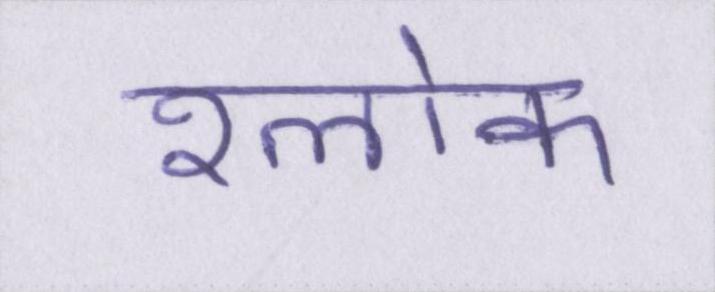 श्लोक